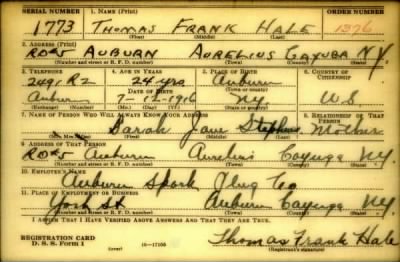 SERIAL NUMBER 1. NAME (Print) ORDER NUMBER
1773 THOMAS FRANK HALE 1376
(First) (Middle) (Last)
2. ADDRESS (Print)
RD#5 AUBURN AURELIUS CAYUGA N.Y.
(Number and street or R. F. D. number) (Town) (County) (State)
3. TELEPHONE 4. AGE IN YEARS 5. PLACE OF BIRTH 6. COUNTRY OF CITIZENSHIP
2491 R2 24 yrs Auburn
DATE OF BIRTH (Town or county)
Auburn 7-12-1916 N.Y. U.S.
(Exchange) (Number) (Mo.) (Day) (Yr.) (State or country)
7. NAME OF PERSON WHO WILL ALWAYS KNOW YOUR ADDRESS 8. RELATIONSHIP OF THAT PERSON
Sarah Jane Stephens Mother
(Mr., Mrs., Miss) (First) (Middle) (Last)
9. ADDRESS OF THAT PERSON
RD#5 Auburn Aurelius Cayuga N.Y.
(Number and street or R. F. D. number) (Town) (County) (State)
10. EMPLOYER'S NAME
Auburn Spark Plug Co
11. PLACE OF EMPLOYMENT OR BUSINESS
York St Auburn Cayuga N.Y.
(Number and street or R. F. D. number) (Town) (County) (State)
I AFFIRM THAT I HAVE VERIFIED ABOVE ANSWERS AND THAT THEY ARE TRUE.
REGISTRATION CARD
D. S. S. Form 1 16-17105 Thomas Frank Hale
(Registrant's signature)